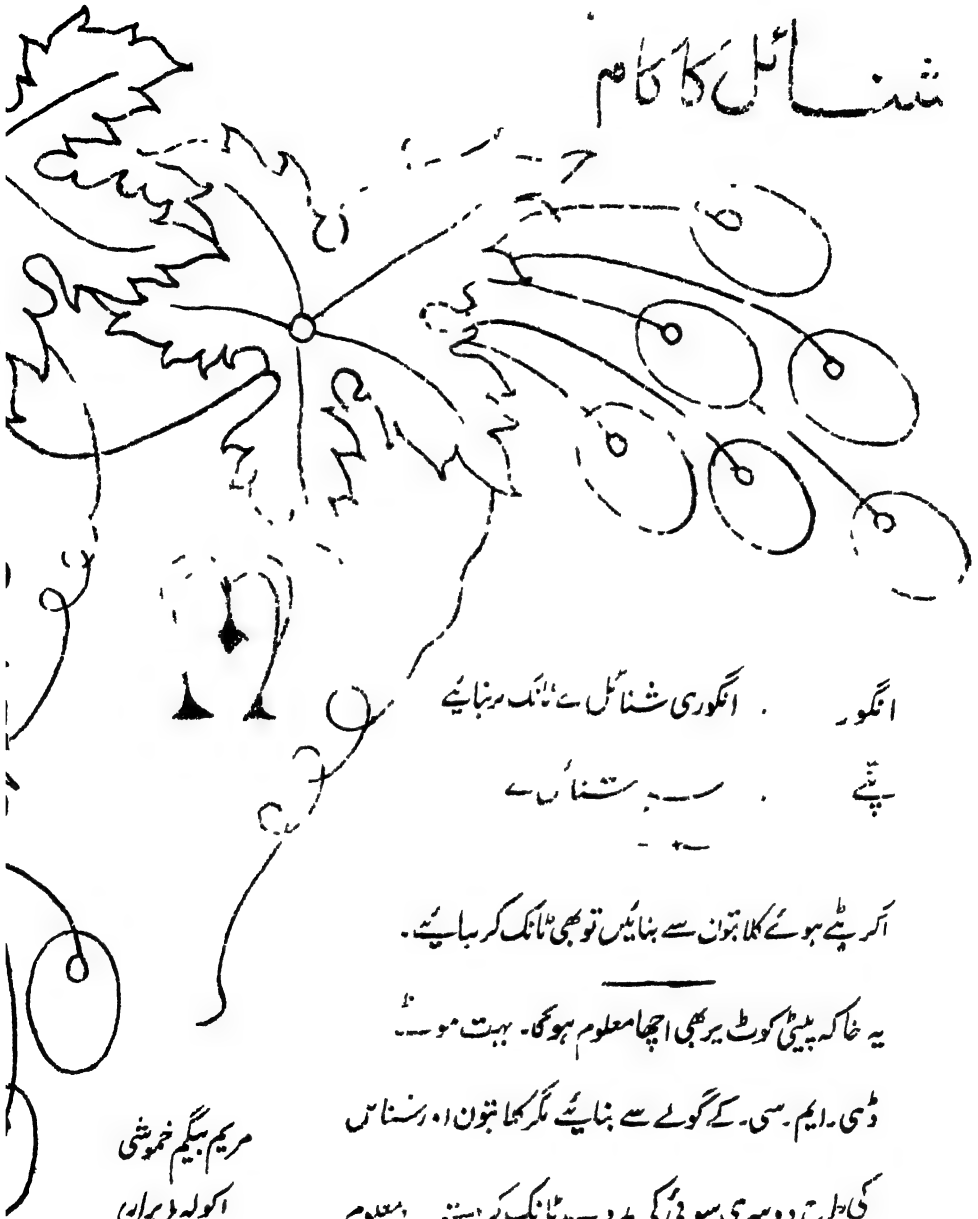 شنائل کا کام
انگور . انگوری شنائل سے ٹانک کر بنائیے
پتّے . سبز شنائل سے
اگر بٹے ہوئے کلابتون سے بنائیں تو بھی ٹانک کر بنایئے .
یہ خاکہ پیٹی کوٹ پر بھی اچھا معلوم ہوگا . بہت موٹے
ڈی . ایم . سی . کے گولے سے بنایئے مگر کلابتون اور شنائل
کی طرح دوسری سوئی کی مدد سے ٹانک کر معلوم
مریم بیگم خموشی
اکولہ (برار)